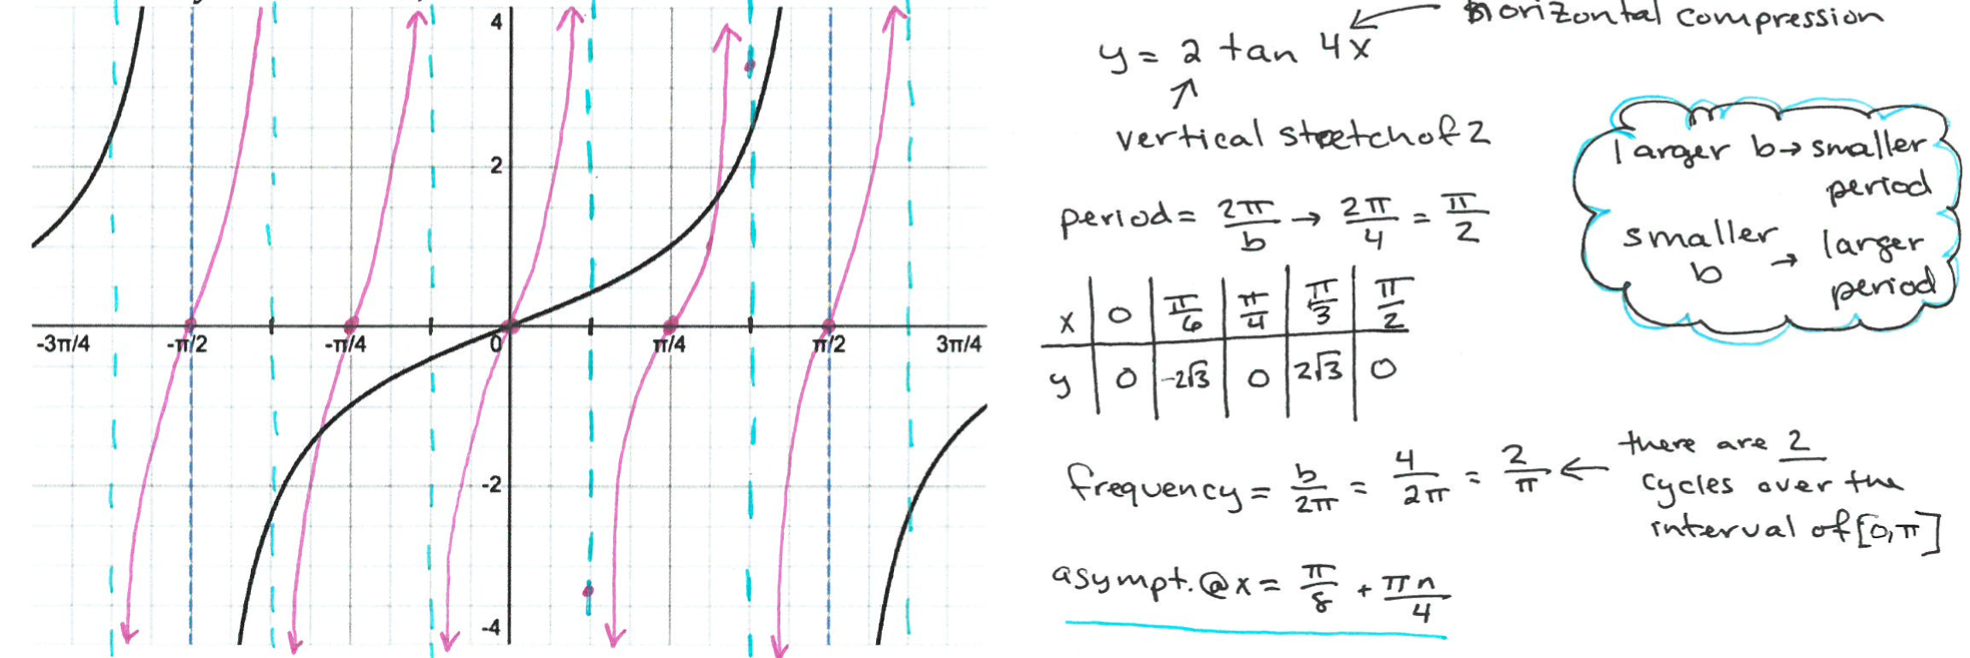 4
2
-3π/4 -π/2 -π/4 0 π/4 π/2 3π/4
-2
-4
horizontal compression
y = 2 tan 4x
vertical stretch of 2
period = 2π/b → 2π/4 = π/2
x | 0 | π/6 | π/4 | π/3 | π/2
y | 0 | -2√3 | 0 | 2√3 | 0
frequency = b/2π = 4/2π = 2/π ←
there are 2
cycles over the
interval of [0,π]
asympt. @ x = π/8 + πn/4
larger b → smaller
period
smaller
b → larger
period